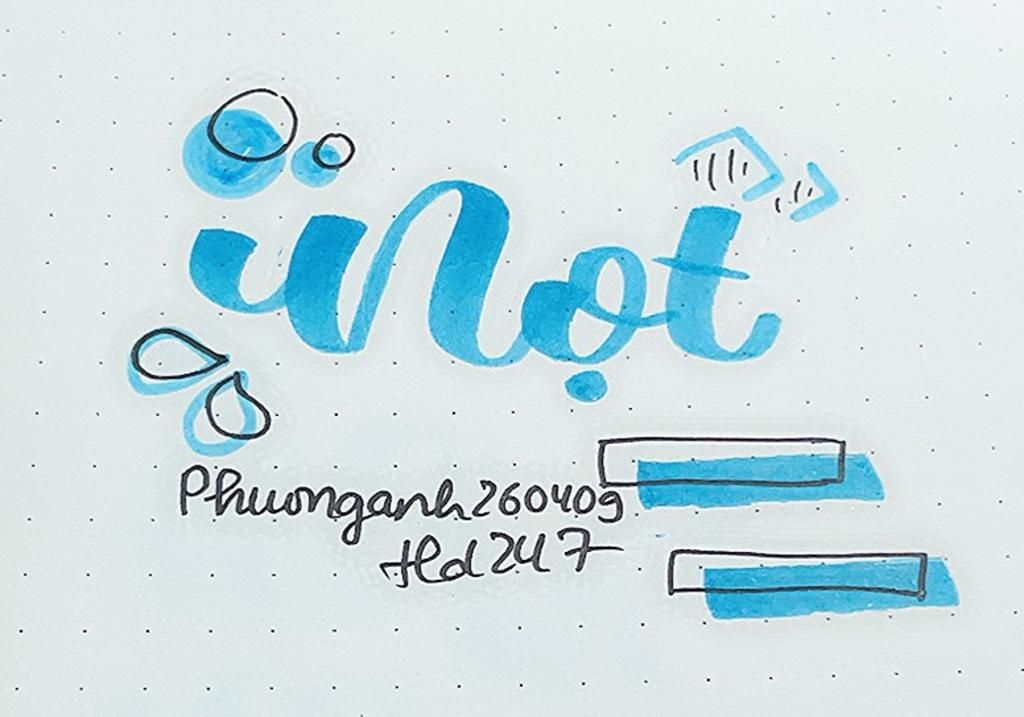 Nọt
Phuonganh260409
Hd247